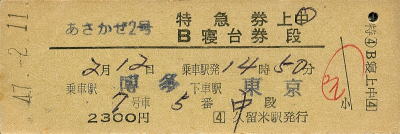 47.-2.11
あさかぜ2号
特急券上中
B寝台券段
2月12日 乗車駅発14時50分
乗車駅 博多 下車駅 東京
7号車 5番 中段
2300円 [4] 久留米駅発行
特④B寝上中[4]
小